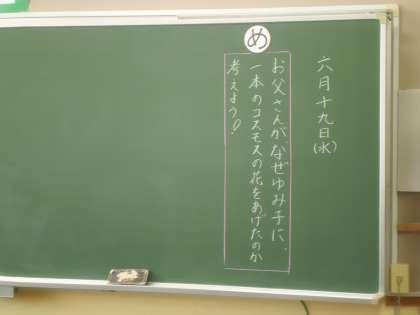 六月十九日(水)
め
お父さんが、なぜゆみ子に、
一本のコスモスの花をあげたのか
考えよう!